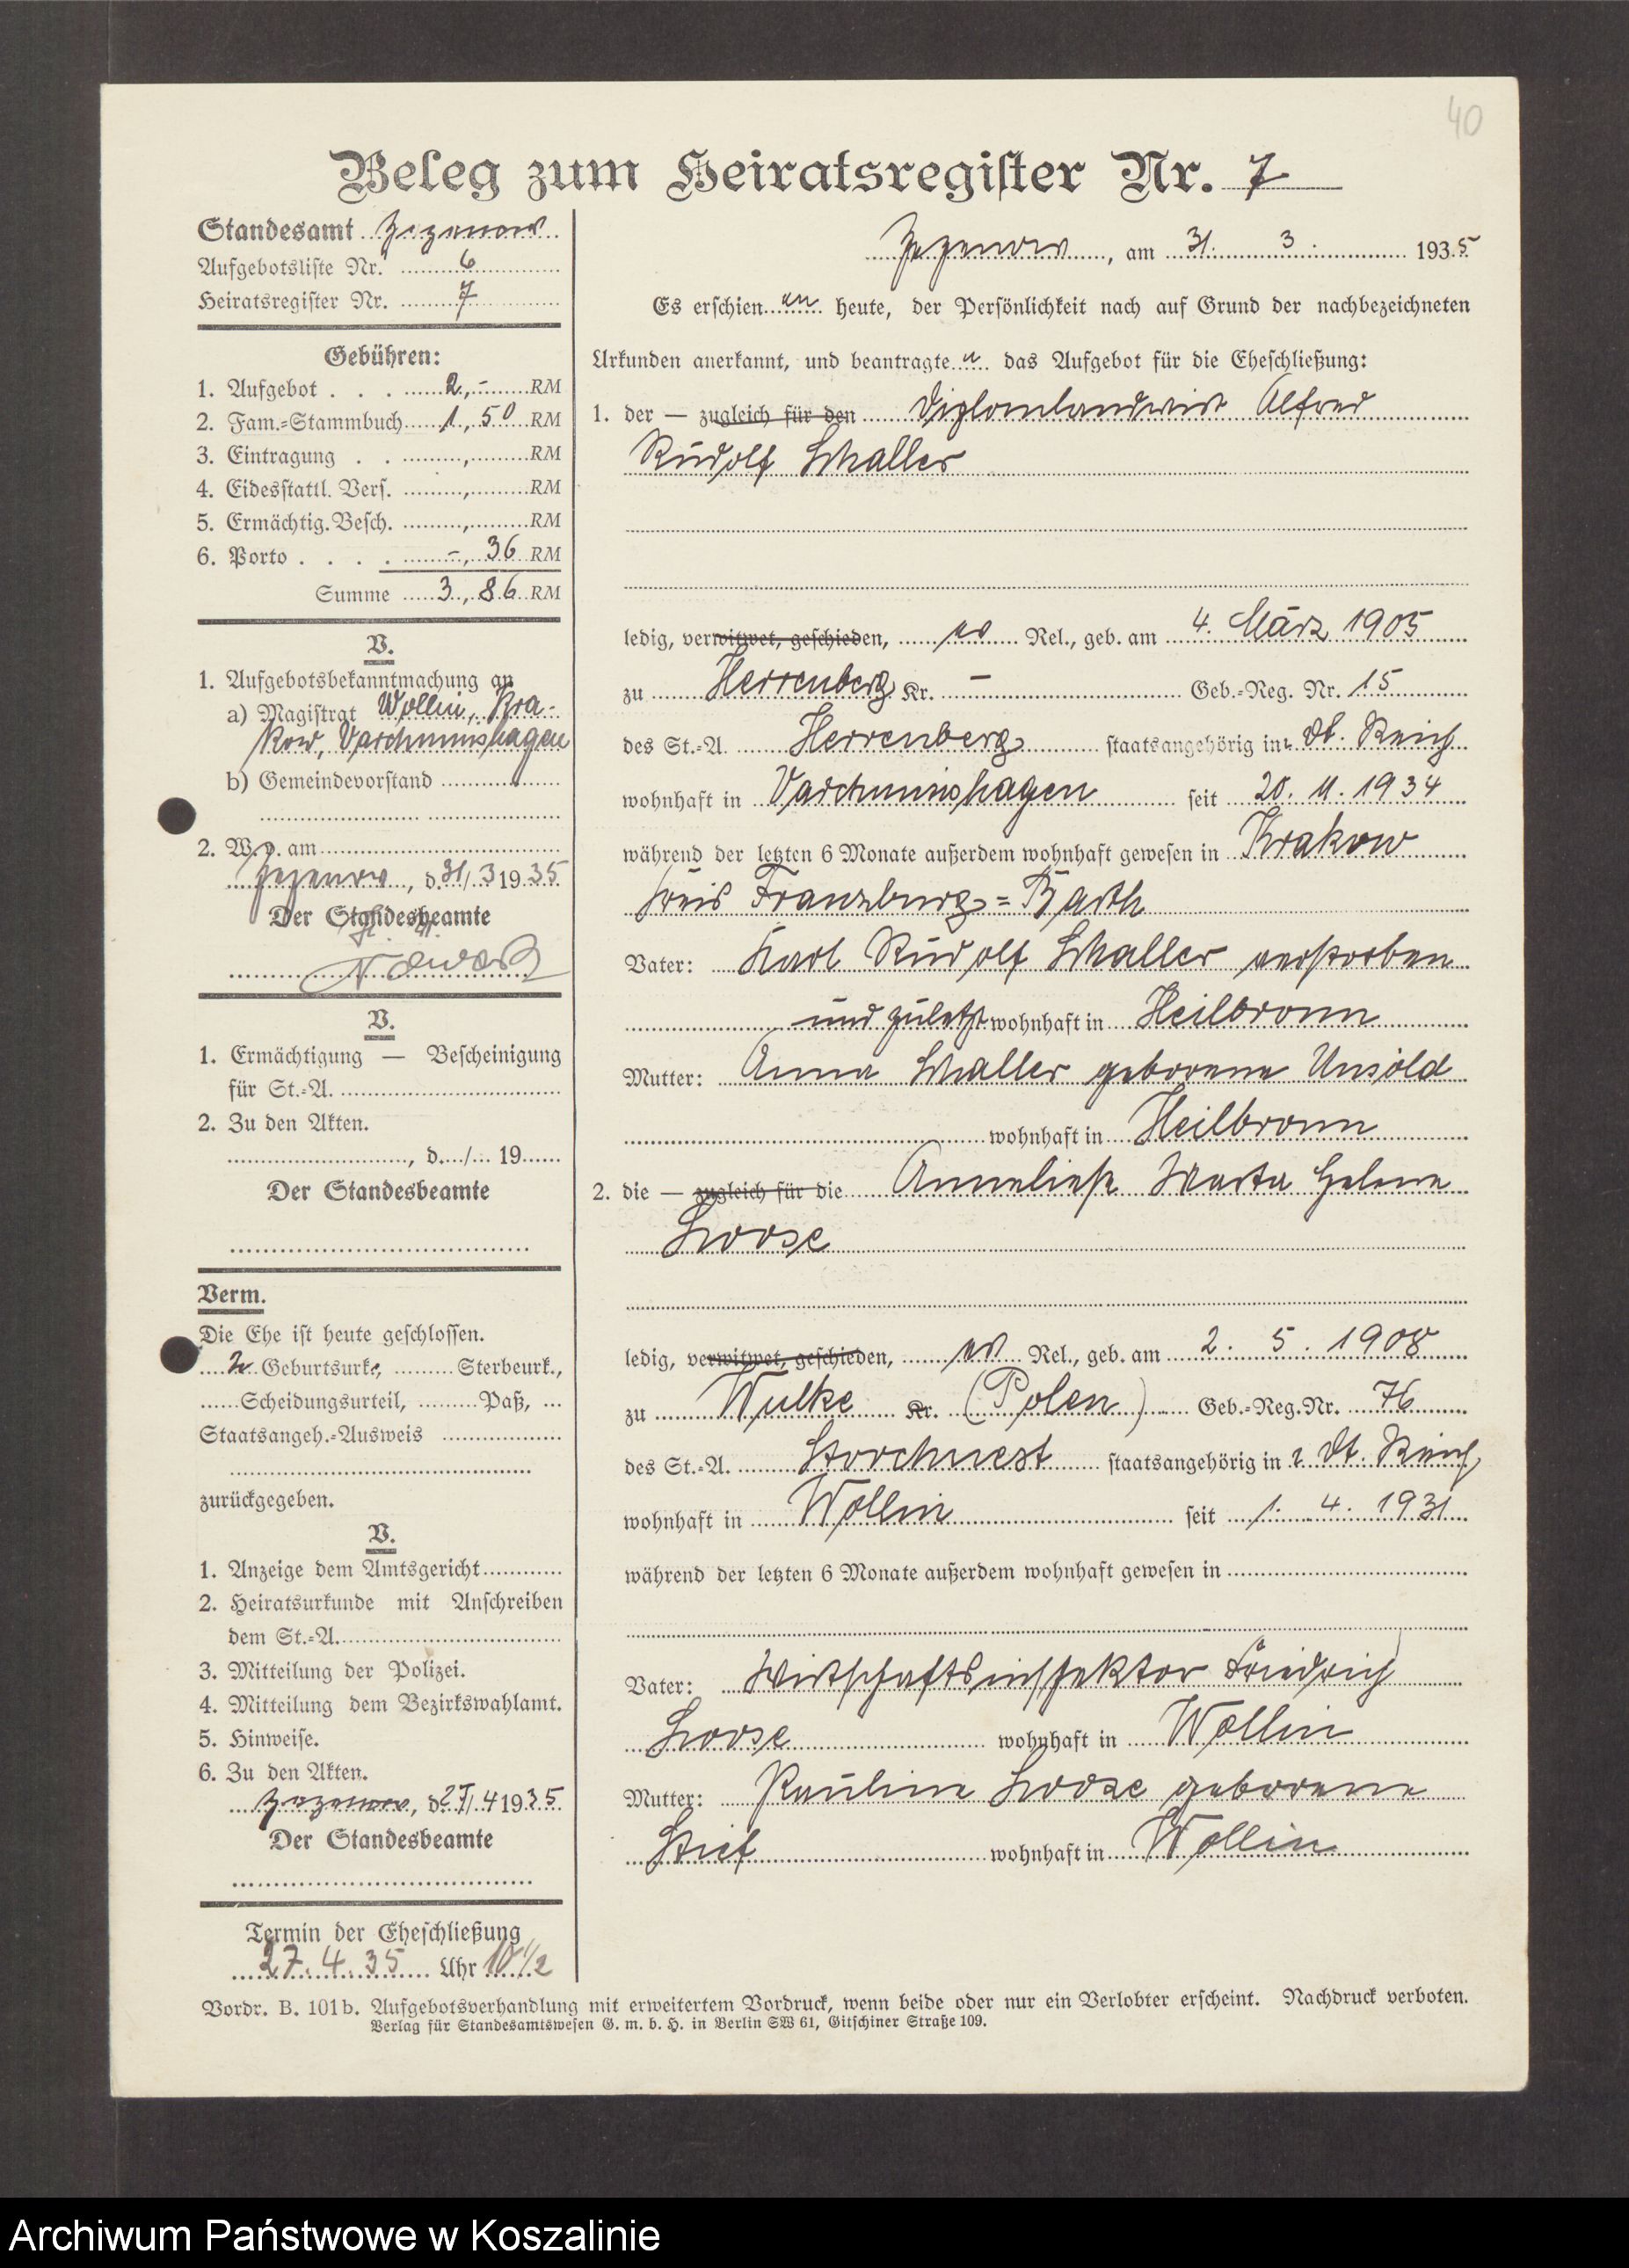 40
Beleg zum Heiratsregister Nr. 7
Standesamt Zezenow
Aufgebotsliste Nr. 6
Heiratsregister Nr. 7
Gebühren:
1. Aufgebot . . . 2,- RM
2. Fam.-Stammbuch 1,50 RM
3. Eintragung . . , RM
4. Eidesstattl. Vers. , RM
5. Ermächtig. Besch. , RM
6. Porto . . . . -,36 RM
Summe 3,86 RM
V.
1. Aufgebotsbekanntmachung an
a) Magistrat Wollin, Kra-
kow, Varchminshagen
b) Gemeindevorstand
2. W. v. am
Zezenow, d. 31/3 1935
Der Standesbeamte
V.
1. Ermächtigung — Bescheinigung
für St.-A.
2. Zu den Akten.
, d. / 19
Der Standesbeamte
Verm.
Die Ehe ist heute geschlossen.
2 Geburtsurk., Sterbeurk.,
Scheidungsurteil, Paß,
Staatsangeh.-Ausweis
zurückgegeben.
V.
1. Anzeige dem Amtsgericht
2. Heiratsurkunde mit Anschreiben
dem St.-A.
3. Mitteilung der Polizei.
4. Mitteilung dem Bezirkswahlamt.
5. Hinweise.
6. Zu den Akten.
Zezenow, d. 27/4 1935
Der Standesbeamte
Termin der Eheschließung
27.4.35 Uhr 10 1/2
Zezenow, am 31. 3. 1935
Es erschienen heute, der Persönlichkeit nach auf Grund der nachbezeichneten
Urkunden anerkannt, und beantragten das Aufgebot für die Eheschließung:
1. der — zugleich für den Diplomlandwirt Alfred
Rudolf Schaller
ledig, verwitwet, geschieden, ev Rel., geb. am 4. März 1905
zu Herrenberg Kr. – Geb.-Reg. Nr. 15
des St.-A. Herrenberg staatsangehörig in: Dt. Reich
wohnhaft in Varchminshagen seit 20. 11. 1934
während der letzten 6 Monate außerdem wohnhaft gewesen in Krakow
Kreis Franzburg=Barth
Vater: Karl Rudolf Schaller verstorben
und zuletzt wohnhaft in Heilbronn
Mutter: Anna Schaller geborene Unsöld
wohnhaft in Heilbronn
2. die — zugleich für die Anneliese Marta Helene
Loose
ledig, verwitwet, geschieden, ev Rel., geb. am 2. 5. 1908
zu Wulke Kr. (Polen) Geb.-Reg. Nr. 76
des St.-A. Storchnest staatsangehörig in: Dt. Reich
wohnhaft in Wollin seit 1. 4. 1931
während der letzten 6 Monate außerdem wohnhaft gewesen in
Vater: Wirtschaftsinspektor Friedrich
Loose wohnhaft in Wollin
Mutter: Pauline Loose geborene
Stief wohnhaft in Wollin
Vordr. B. 101b. Aufgebotsverhandlung mit erweitertem Vordruck, wenn beide oder nur ein Verlobter erscheint. Nachdruck verboten.
Verlag für Standesamtswesen G. m. b. H. in Berlin SW 61, Gitschiner Straße 109.
Archiwum Państwowe w Koszalinie